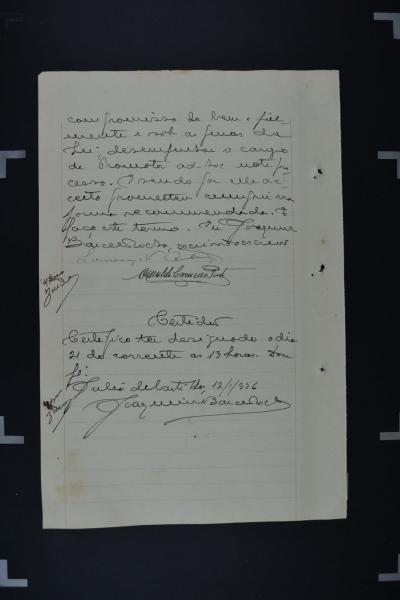 compromisso de bem e fiel-
mente e sob as penas da
Lei desempenhar o cargo
de Promotor ad-hoc neste pro
cesso. E sendo por elle ac-
ceito prometteu cumprir na
forma recommendada. E
faço este termo. Eu Joaquim
escrivão o escrevi
Certidão
Certifico ter designado o dia
21 do corrente as 13 horas. Dou
fé.
Julio de Castilhos, 12/1/926
Joaquim